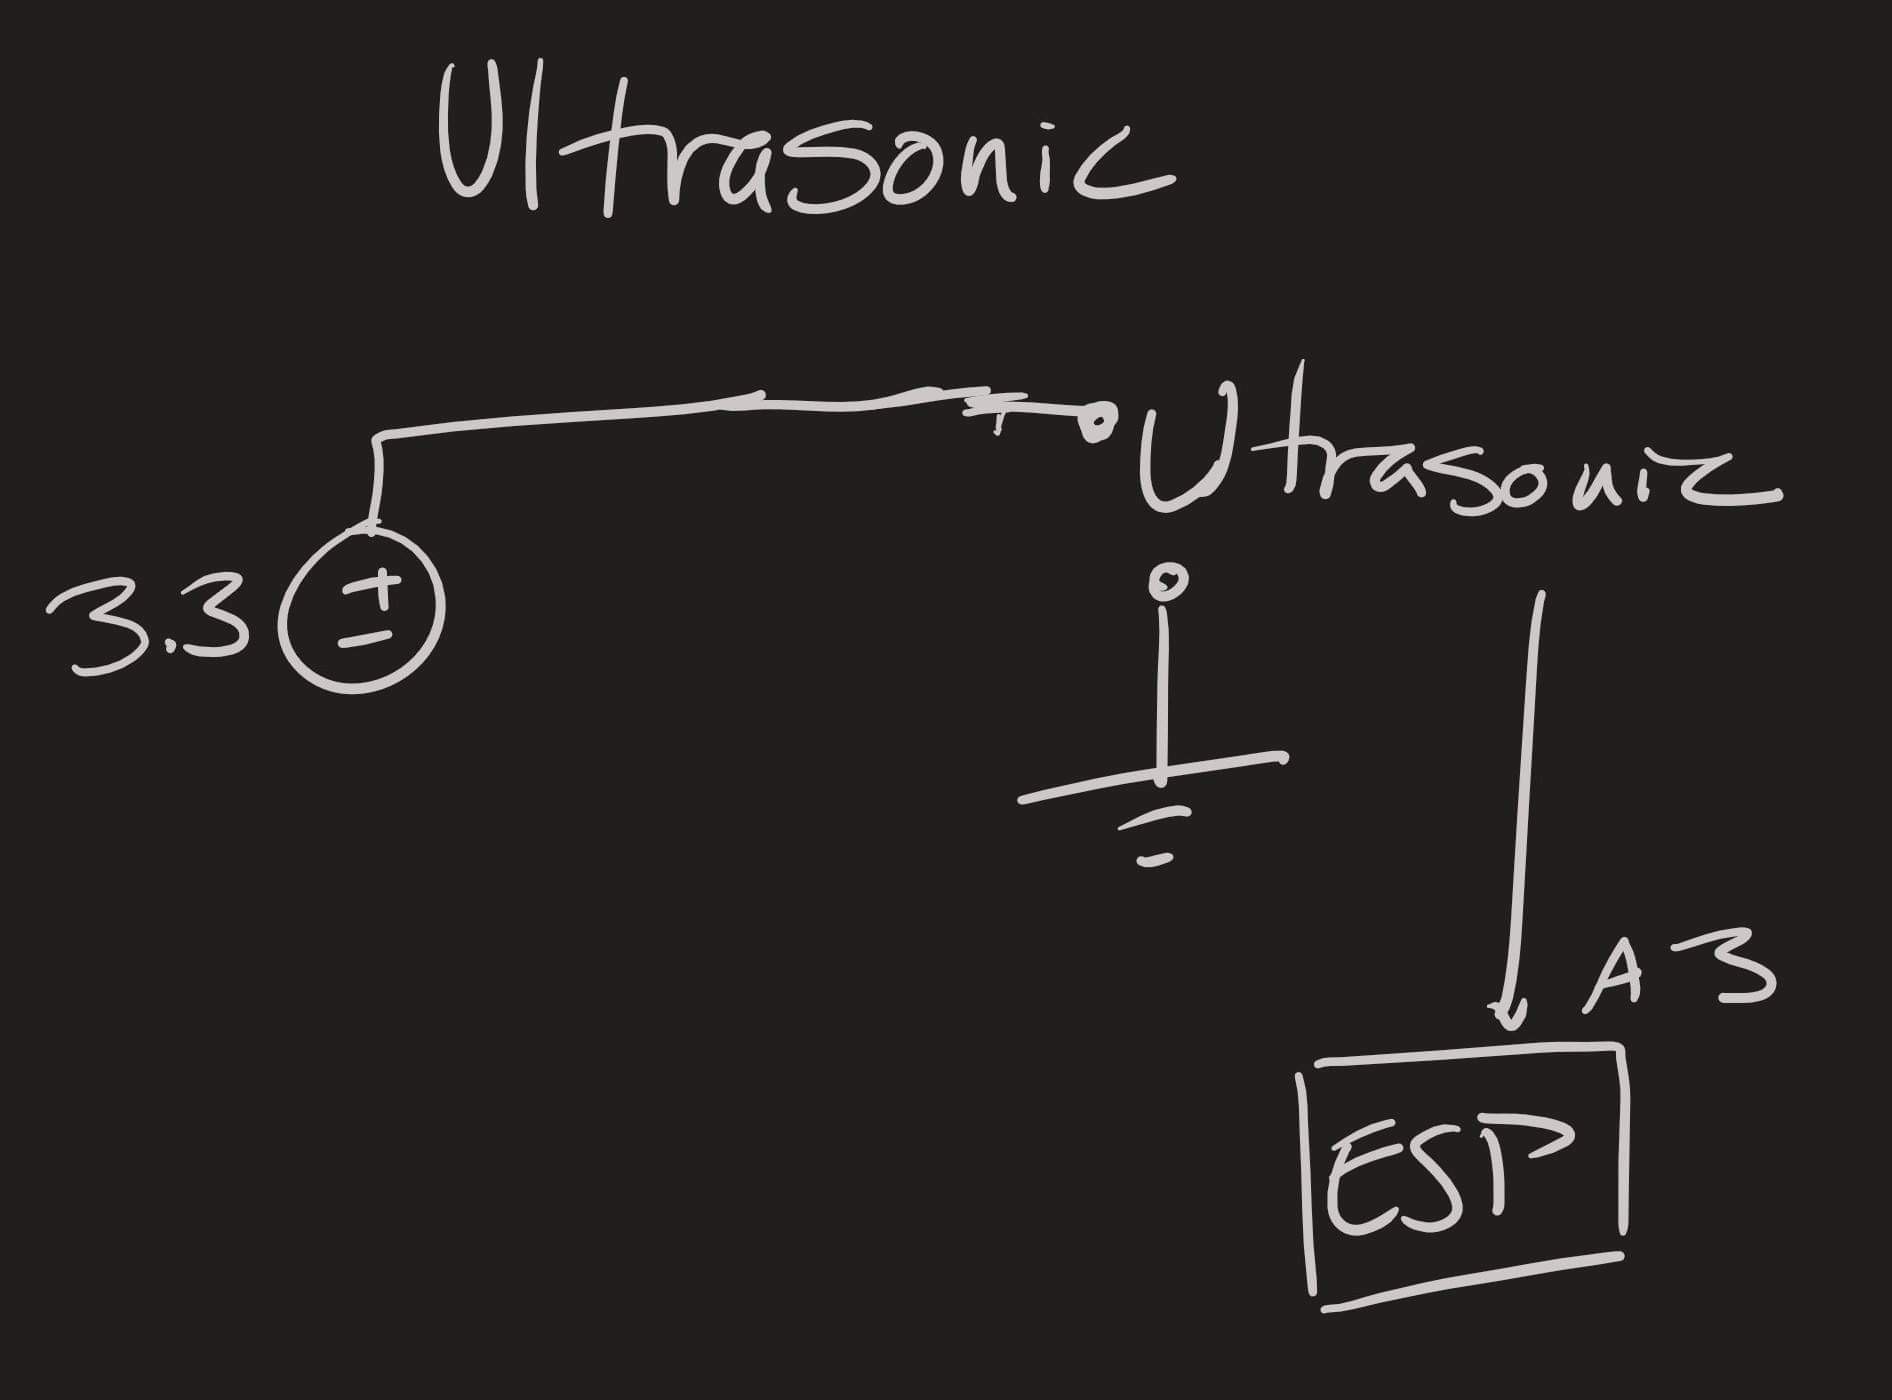 Ultrasonic
Utrasonic
3.3
A3
ESP